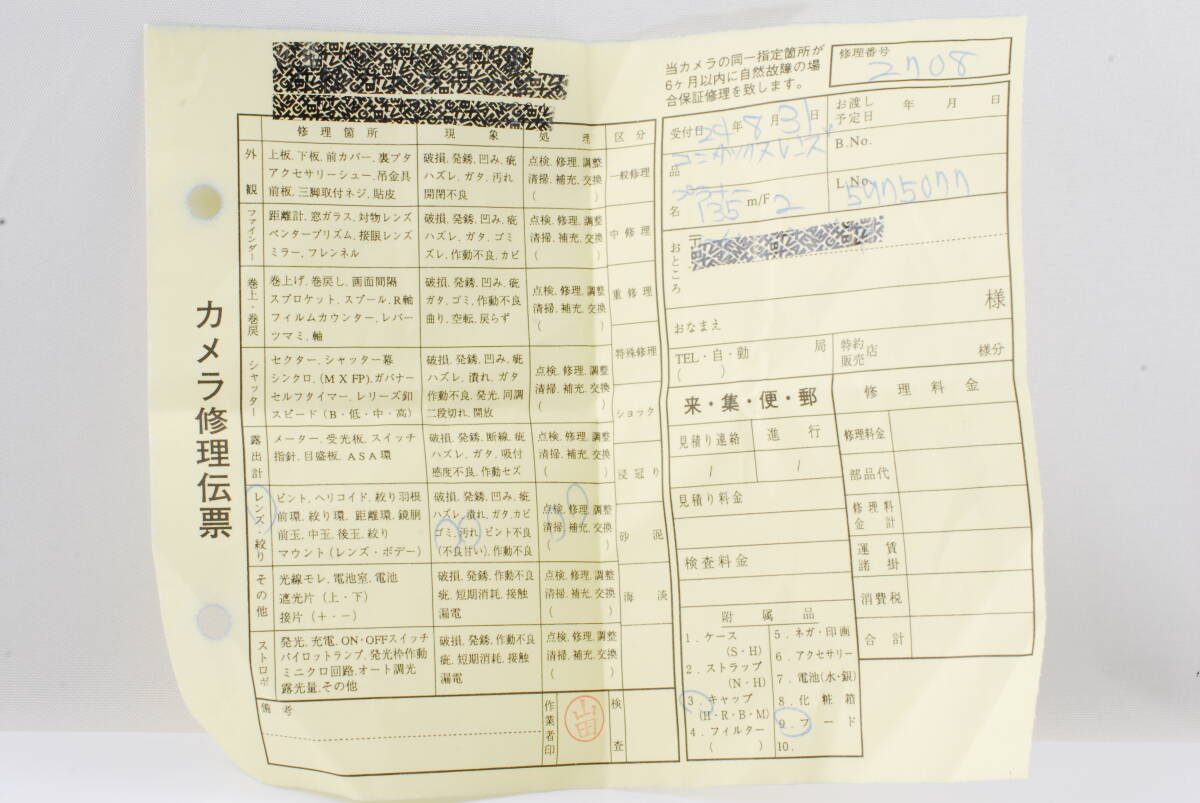 カメラ修理伝票
当カメラの同一指定箇所が
6ヶ月以内に自然故障の場
合保証修理を致します。
修理番号
2708
修理箇所 現象 処理 区分
外観
上板, 下板, 前カバー, 裏ブタ
アクセサリーシュー, 吊金具
前板, 三脚取付ネジ, 貼皮
破損, 発銹, 凹み, 疵
ハズレ, ガタ, 汚れ
開閉不良
点検, 修理, 調整
清掃, 補充, 交換
( )
一般修理
ファインダー
距離計, 窓ガラス, 対物レンズ
ペンタープリズム, 接眼レンズ
ミラー, フレンネル
破損, 発銹, 凹み, 疵
ハズレ, ガタ, ゴミ
ズレ, 作動不良, カビ
点検, 修理, 調整
清掃, 補充, 交換
( )
中修理
巻上・巻戻
巻上げ, 巻戻し, 画面間隔
スプロケット, スプール, R軸
フィルムカウンター, レバー
ツマミ, 軸
破損, 発銹, 凹み, 疵
ガタ, ゴミ, 作動不良
曲り, 空転, 戻らず
点検, 修理, 調整
清掃, 補充, 交換
( )
重修理
シャッター
セクター, シャッター幕
シンクロ, (M X FP), ガバナー
セルフタイマー, レリーズ釦
スピード (B・低・中・高)
破損, 発銹, 凹み, 疵
ハズレ, 潰れ, ガタ
作動不良, 発光, 同調
二段切れ, 開放
点検, 修理, 調整
清掃, 補充, 交換
( )
特殊修理
ショック
露出計
メーター, 受光板, スイッチ
指針, 目盛板, ASA環
破損, 発銹, 断線, 疵
ハズレ, ガタ, 吸付
感度不良, 作動セズ
点検, 修理, 調整
清掃, 補充, 交換
( )
浸冠り
レンズ・絞り
ピント, ヘリコイド, 絞り羽根
前環, 絞り環, 距離環, 鏡胴
前玉, 中玉, 後玉, 絞り
マウント (レンズ・ボデー)
破損, 発銹, 凹み, 疵
ハズレ, 潰れ, ガタ, カビ
ゴミ, 汚れ, ピント不良
(不良甘い), 作動不良
点検, 修理, 調整
清掃, 補充, 交換
( )
砂泥
その他
光線モレ, 電池室, 電池
遮光片 (上・下)
接片 (+・−)
破損, 発銹, 作動不良
疵, 短期消耗, 接触
漏電
点検, 修理, 調整
清掃, 補充, 交換
( )
海淡
ストロボ
発光, 充電, ON・OFFスイッチ
パイロットランプ, 発光枠作動
ミニクロ回路, オート調光
露光量, その他
破損, 発銹, 作動不良
疵, 短期消耗, 接触
漏電
点検, 修理, 調整
清掃, 補充, 交換
( )
備考
作業者印
山田
検査
受付日 24年8月31日
お渡し予定日 年 月 日
品名
コンタックスレンズ
プラナー
135 m/F 2
B.No.
L.No.
5975077
おところ
〒
おなまえ
様
TEL・自・勤 局
( )
特約
販売店 様分
来・集・便・郵
見積り連絡 進行
/ /
見積り料金
検査料金
修理料金
修理料金
部品代
修理料
金計
運賃
諸掛
消費税
合計
附属品
1. ケース
(S・H)
2. ストラップ
(N・H)
3. キャップ
(H・R・B・M)
4. フィルター
( )
5. ネガ・印画
6. アクセサリー
7. 電池(水・銀)
8. 化粧箱
9. フード
10.